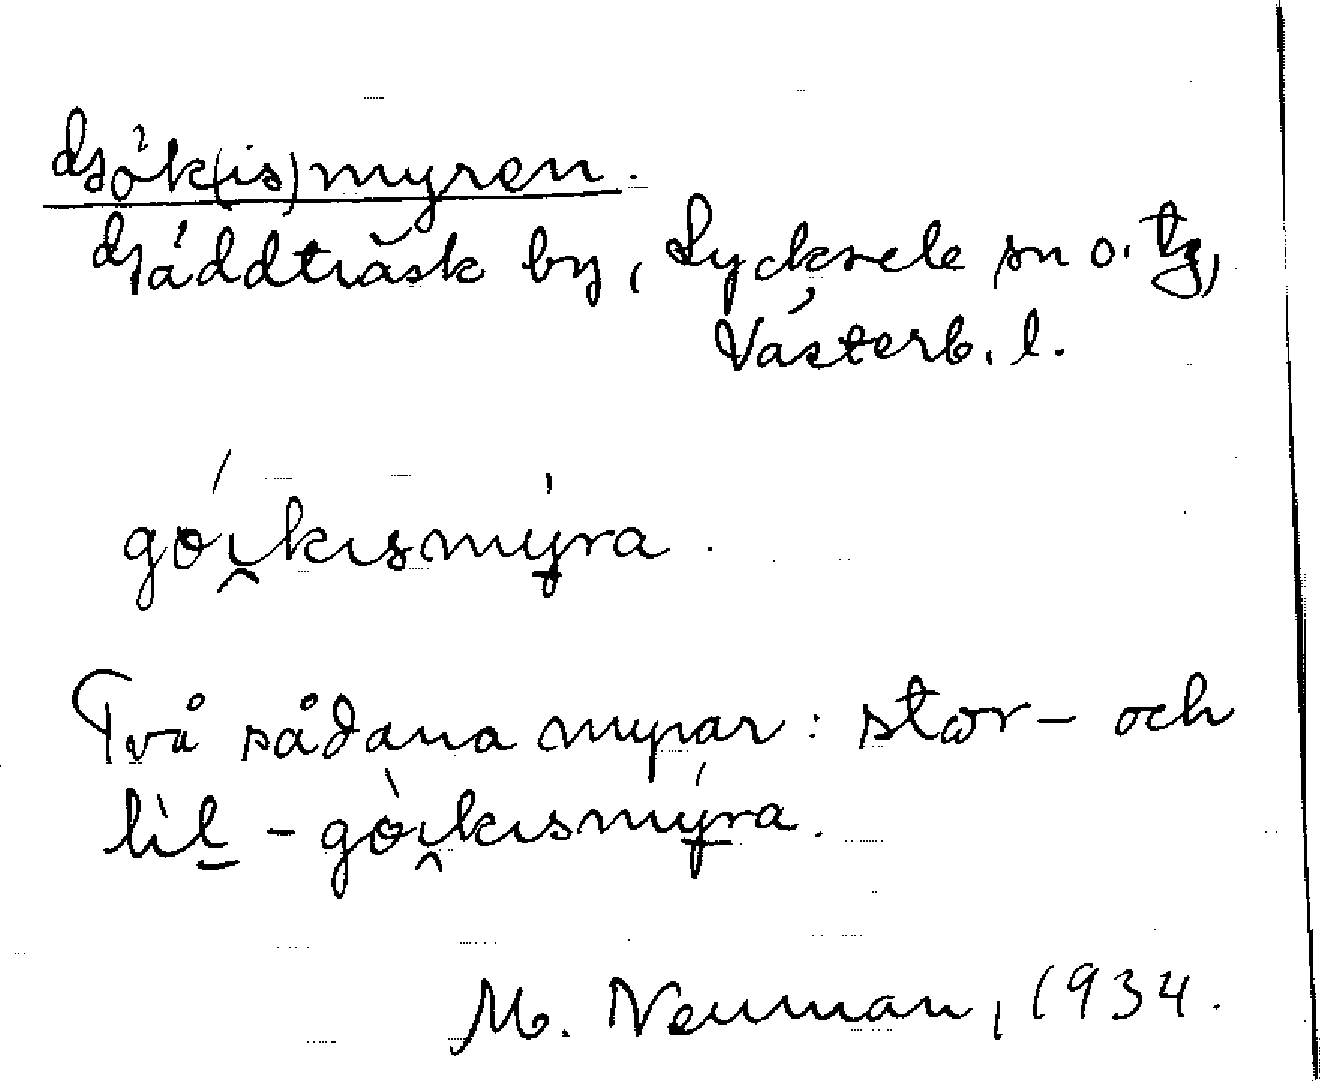 Gök(is)myren.
Gäddträsk by, Lycksele sn o. tg,
Västerb. l.
góikɩsmýra.
Två sådana myrar: stor- och
lìl - gòikɩsmýra.
M. Neuman, 1934.